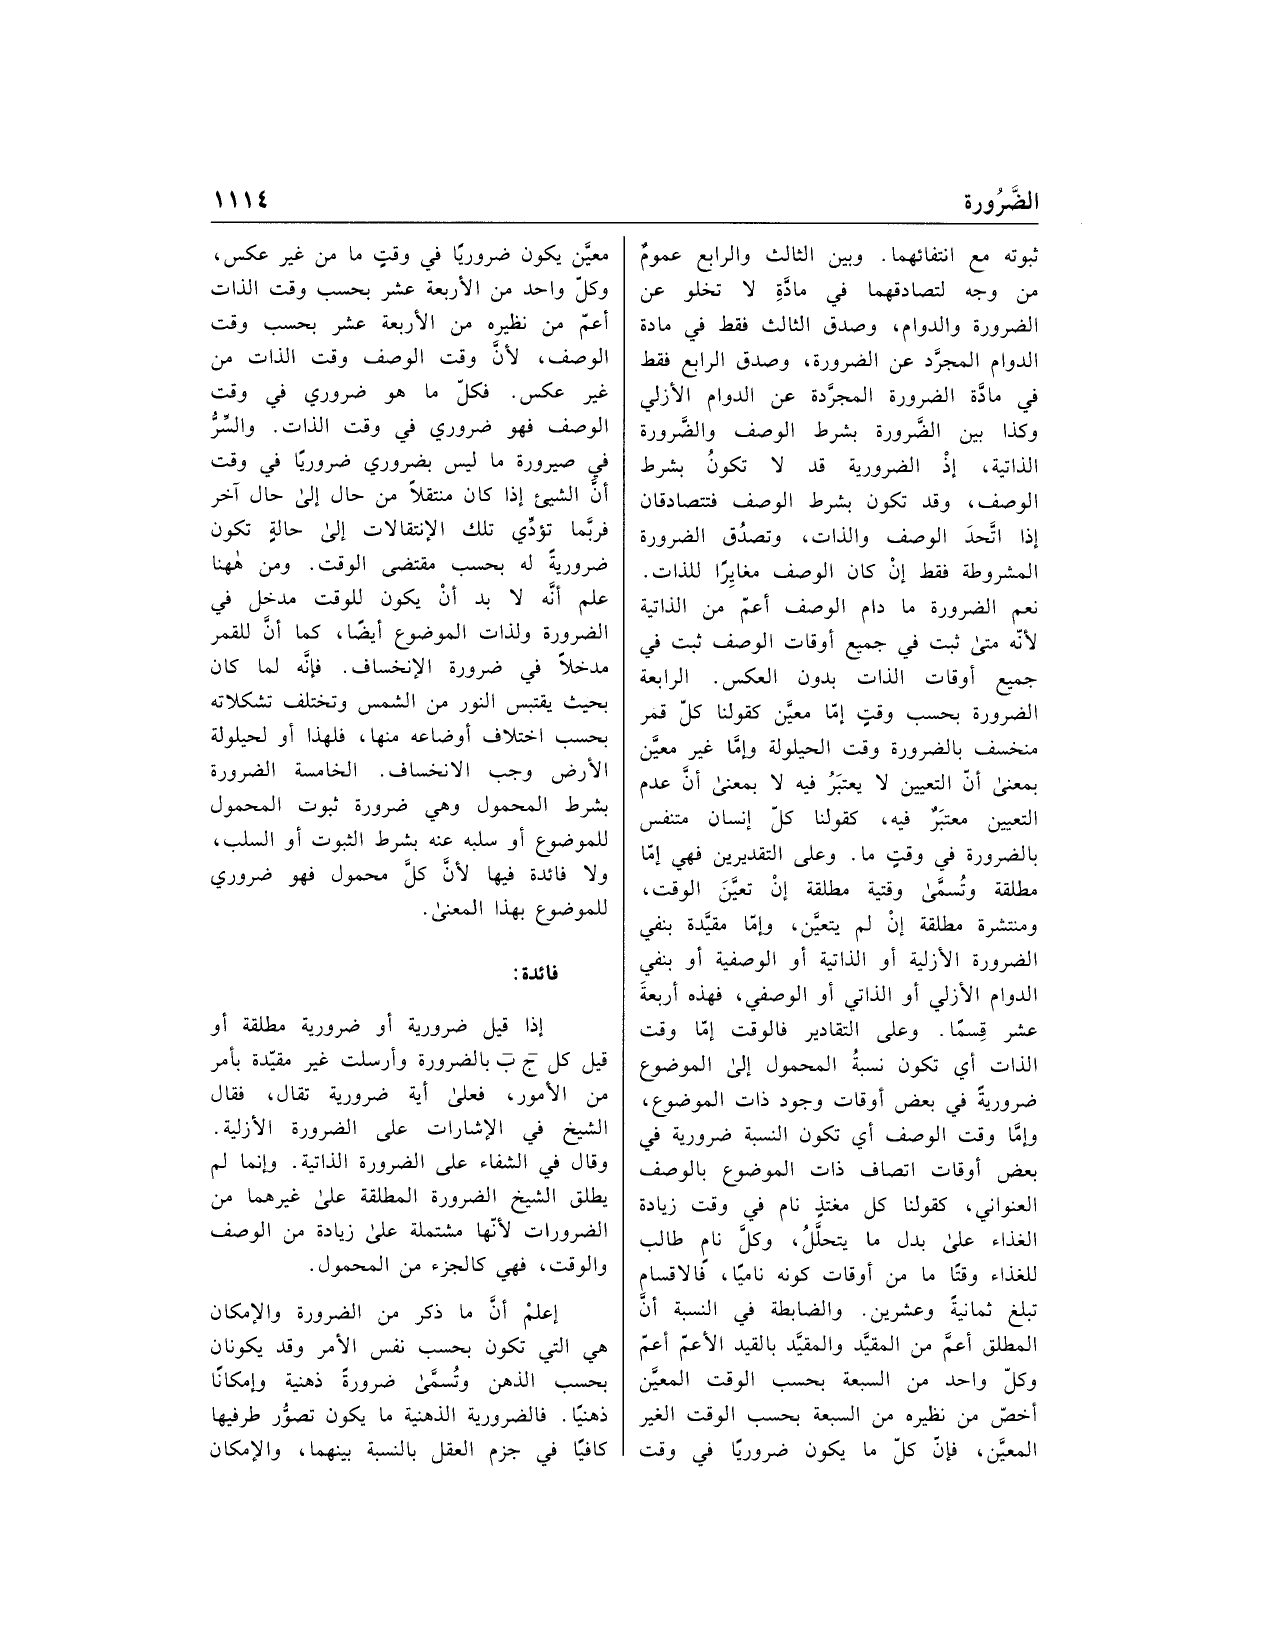 الضَّرُورة
١١١٤
ثبوته مع انتفائهما. وبين الثالث والرابع عمومٌ
من وجه لتصادقهما في مادَّةِ لا تخلو عن
الضرورة والدوام، وصدق الثالث فقط في مادة
الدوام المجرَّد عن الضرورة، وصدق الرابع فقط
في مادَّة الضرورة المجرَّدة عن الدوام الأزلي
وكذا بين الضَّرورة بشرط الوصف والضَّرورة
الذاتية، إذْ الضرورية قد لا تكونُ بشرط
الوصف، وقد تكون بشرط الوصف فتتصادقان
إذا اتَّحدَ الوصف والذات، وتصدُق الضرورة
المشروطة فقط إنْ كان الوصف مغايِرًا للذات.
نعم الضرورة ما دام الوصف أعمّ من الذاتية
لأنّه متىٰ ثبت في جميع أوقات الوصف ثبت في
جميع أوقات الذات بدون العكس. الرابعة
الضرورة بحسب وقتٍ إمّا معيَّن كقولنا كلّ قمر
منخسف بالضرورة وقت الحيلولة وإمَّا غير معيَّن
بمعنىٰ أنّ التعيين لا يعتبَرُ فيه لا بمعنىٰ أنَّ عدم
التعيين معتبَرٌ فيه، كقولنا كلّ إنسان متنفس
بالضرورة في وقتٍ ما. وعلى التقديرين فهي إمّا
مطلقة وتُسمَّىٰ وقتية مطلقة إنْ تعيَّنَ الوقت،
ومنتشرة مطلقة إنْ لم يتعيَّن، وإمّا مقيَّدة بنفي
الضرورة الأزلية أو الذاتية أو الوصفية أو بنفي
الدوام الأزلي أو الذاتي أو الوصفي، فهذه أربعةَ
عشر قِسمًا. وعلى التقادير فالوقت إمّا وقت
الذات أي تكون نسبةُ المحمول إلىٰ الموضوع
ضروريةً في بعض أوقات وجود ذات الموضوع،
وإمَّا وقت الوصف أي تكون النسبة ضرورية في
بعض أوقات اتصاف ذات الموضوع بالوصف
العنواني، كقولنا كل مغتذٍ نام في وقت زيادة
الغذاء علىٰ بدل ما يتحلَّلُ، وكلَّ نامٍ طالب
للغذاء وقتًا ما من أوقات كونه ناميًا، فالاقسام
تبلغ ثمانيةً وعشرين. والضابطة في النسبة أنَّ
المطلق أعمَّ من المقيَّد والمقيَّد بالقيد الأعمّ أعمّ
وكلّ واحد من السبعة بحسب الوقت المعيَّن
أخصّ من نظيره من السبعة بحسب الوقت الغير
المعيَّن، فإنّ كلّ ما يكون ضروريًا في وقت
معيَّن يكون ضروريًا في وقتٍ ما من غير عكس،
وكلّ واحد من الأربعة عشر بحسب وقت الذات
أعمّ من نظيره من الأربعة عشر بحسب وقت
الوصف، لأنَّ وقت الوصف وقت الذات من
غير عكس. فكلّ ما هو ضروري في وقت
الوصف فهو ضروري في وقت الذات. والسِّرُّ
في صيرورة ما ليس بضروري ضروريًا في وقت
أنَّ الشيئ إذا كان منتقلاً من حال إلىٰ حال آخر
فربَّما تؤدِّي تلك الإنتقالات إلىٰ حالةٍ تكون
ضروريةً له بحسب مقتضى الوقت. ومن هٰهنا
علم أنَّه لا بد أنْ يكون للوقت مدخل في
الضرورة ولذات الموضوع أيضًا، كما أنَّ للقمر
مدخلاً في ضرورة الإنخساف. فإنَّه لما كان
بحيث يقتبس النور من الشمس وتختلف تشكلاته
بحسب اختلاف أوضاعه منها، فلهذا أو لحيلولة
الأرض وجب الانخساف. الخامسة الضرورة
بشرط المحمول وهي ضرورة ثبوت المحمول
للموضوع أو سلبه عنه بشرط الثبوت أو السلب،
ولا فائدة فيها لأنَّ كلَّ محمول فهو ضروري
للموضوع بهذا المعنىٰ.
فائدة:
إذا قيل ضرورية أو ضرورية مطلقة أو
قيل كل جَ بَ بالضرورة وأرسلت غير مقيّدة بأمر
من الأمور، فعلىٰ أية ضرورية تقال، فقال
الشيخ في الإشارات على الضرورة الأزلية.
وقال في الشفاء على الضرورة الذاتية. وإنما لم
يطلق الشيخ الضرورة المطلقة علىٰ غيرهما من
الضرورات لأنّها مشتملة علىٰ زيادة من الوصف
والوقت، فهي كالجزء من المحمول.
إعلمْ أنَّ ما ذكر من الضرورة والإمكان
هي التي تكون بحسب نفس الأمر وقد يكونان
بحسب الذهن وتُسمَّىٰ ضرورةً ذهنية وإمكانًا
ذهنيًا. فالضرورية الذهنية ما يكون تصوُّر طرفيها
كافيًا في جزم العقل بالنسبة بينهما، والإمكان